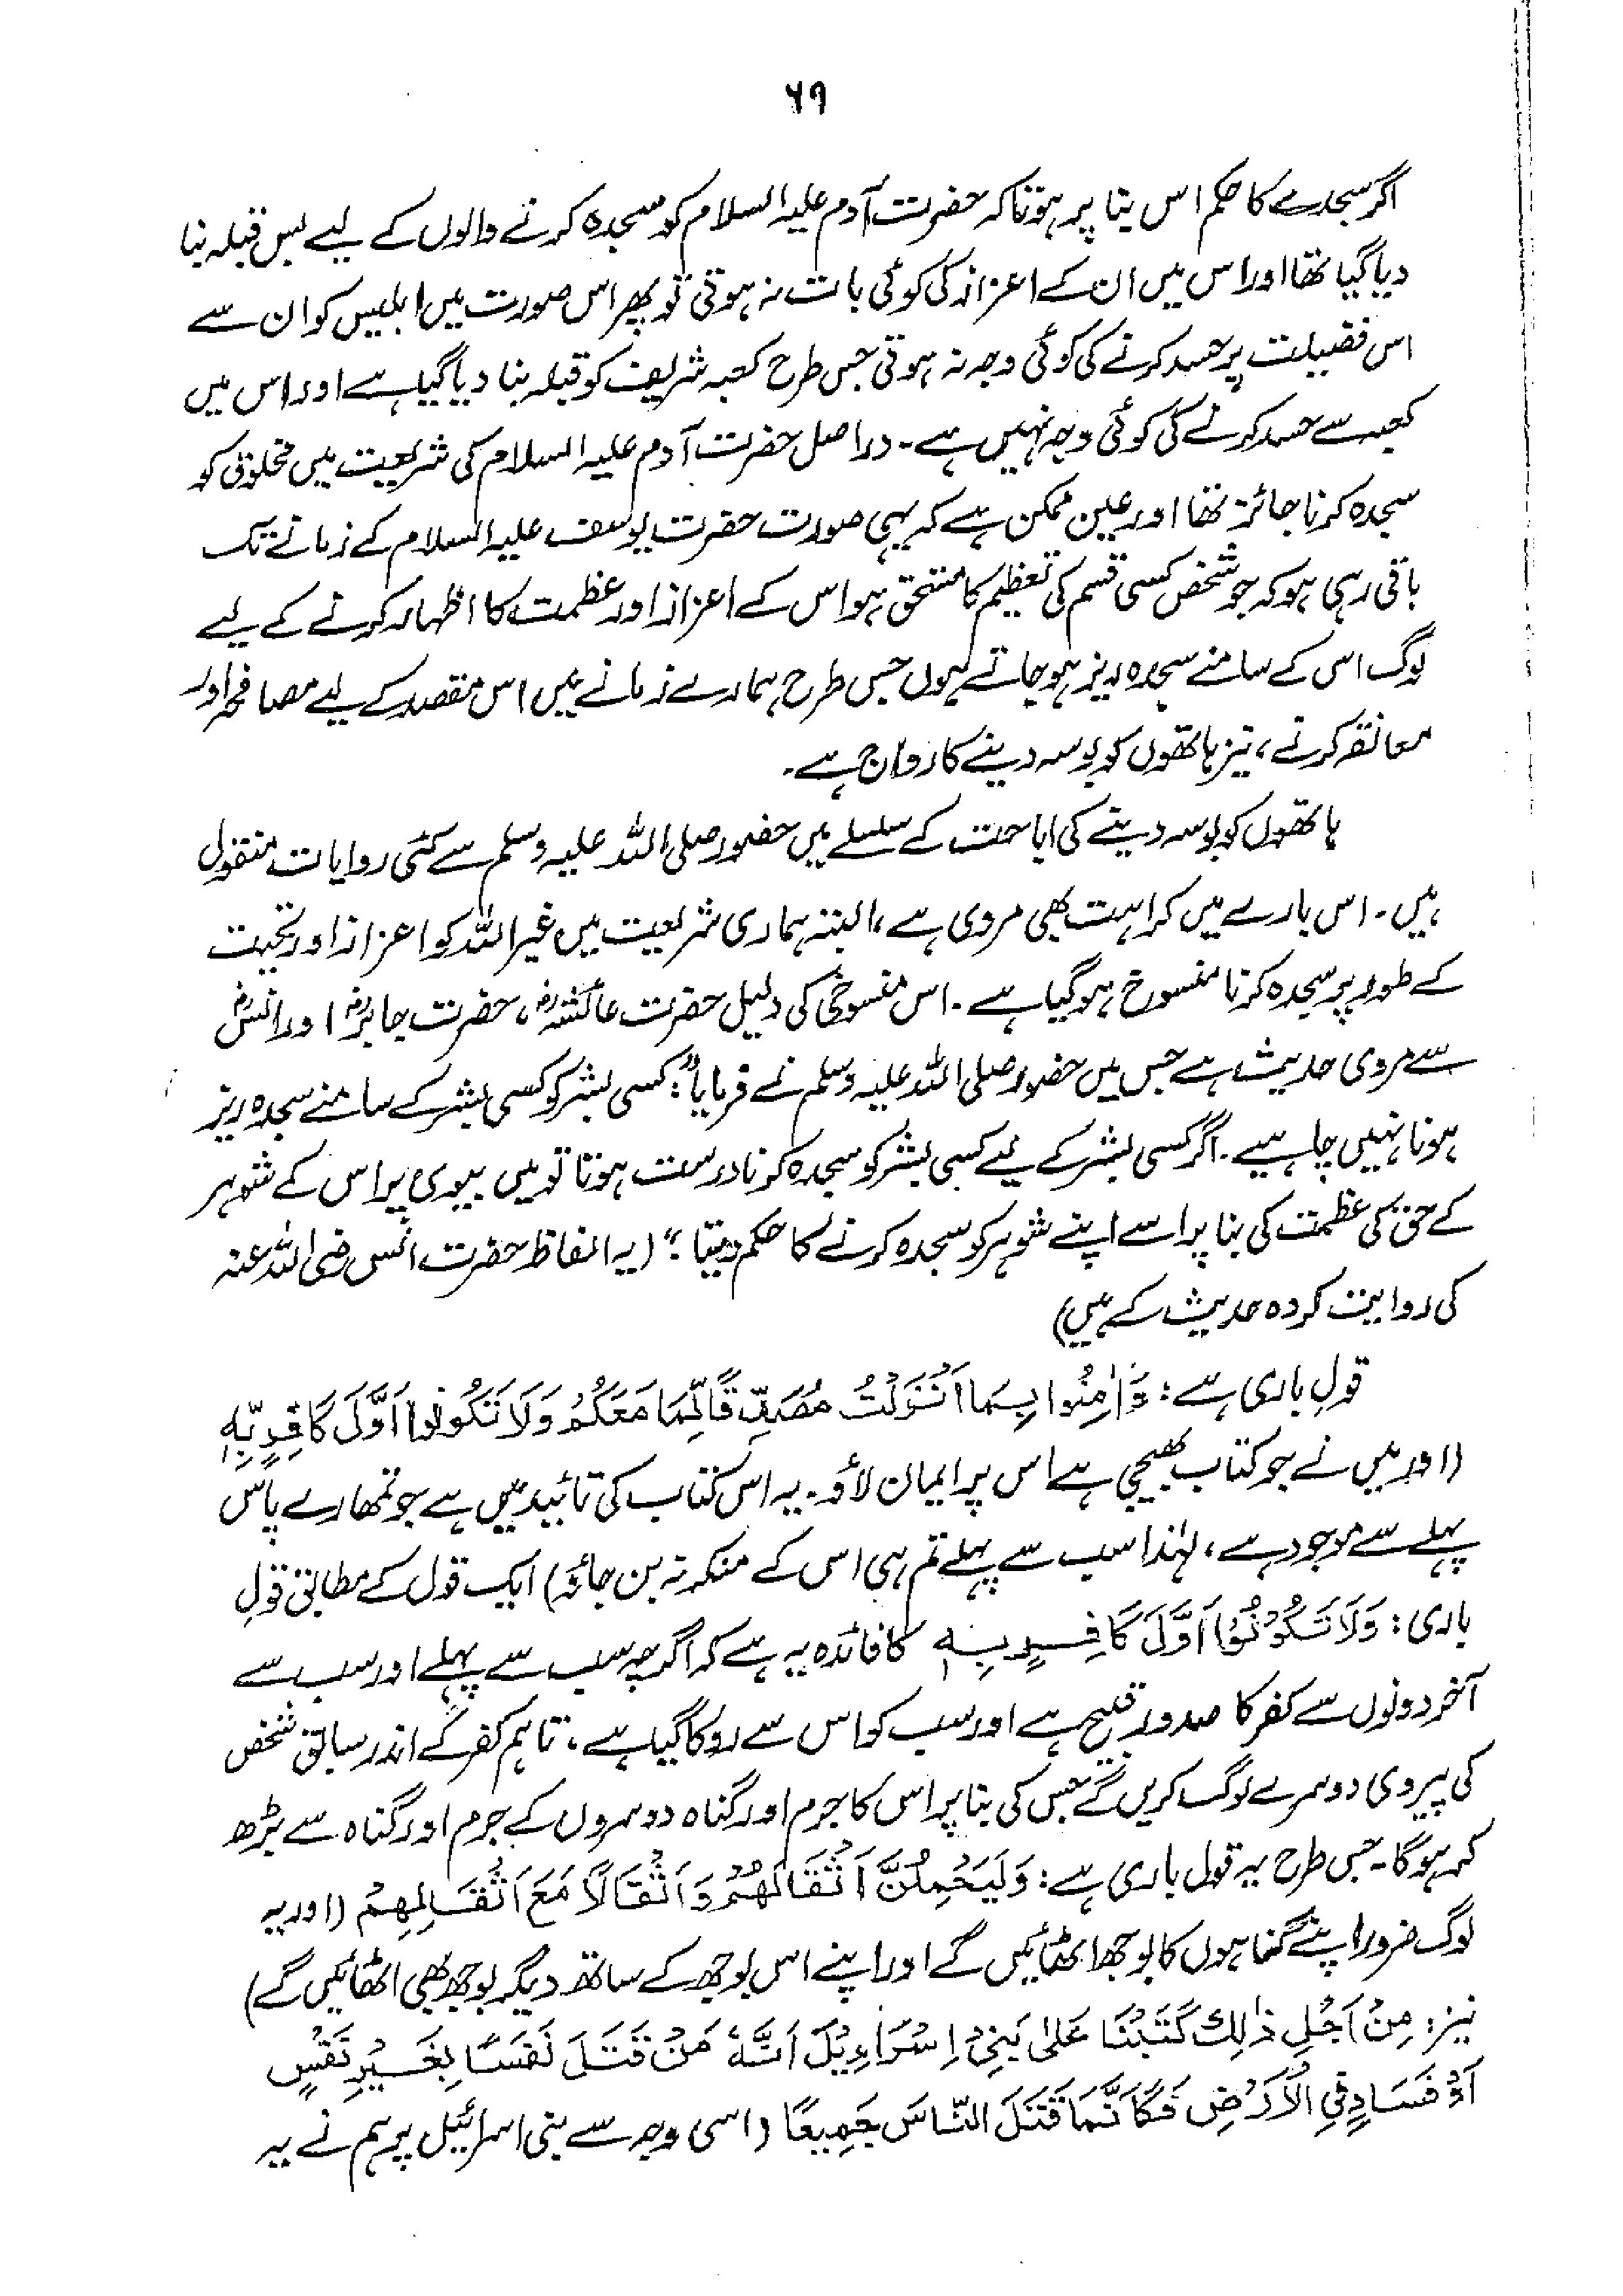 ٦٩
اگر سجدے کا حکم اس بنا پر ہوتا کہ حضرت آدم علیہ السلام کو سجدہ کرنے والوں کے لیے بس قبلہ بنا
دیا گیا تھا اور اس میں ان کے اعزاز کی کوئی بات نہ ہوتی تو پھر اس صورت میں ابلیس کو ان سے
اس فضیلت پر حسد کرنے کی کوئی وجہ نہ ہوتی جس طرح کعبہ شریف کو قبلہ بنا دیا گیا ہے اور اس میں
کعبہ سے حسد کرنے کی کوئی وجہ نہیں ہے۔ دراصل حضرت آدم علیہ السلام کی شریعت میں مخلوق کو
سجدہ کرنا جائز تھا اور عین ممکن ہے کہ یہی صورت حضرت یوسف علیہ السلام کے زمانے تک
باقی رہی ہو کہ جو شخص کسی قسم کی تعظیم کا مستحق ہو اس کے اعزاز اور عظمت کا اظہار کرنے کے لیے
لوگ اس کے سامنے سجدہ ریز ہو جاتے ہوں جس طرح ہمارے زمانے میں اس مقصد کے لیے مصافحہ اور
معانقہ کرنے، نیز ہاتھوں کو بوسہ دینے کا رواج ہے۔
ہاتھوں کو بوسہ دینے کی اباحت کے سلسلے میں حضور صلی اللہ علیہ وسلم سے کئی روایات منقول
ہیں۔ اس بارے میں کراہت بھی مروی ہے، البتہ ہماری شریعت میں غیر اللہ کو اعزاز اور تحیت
کے طور پر سجدہ کرنا منسوخ ہو گیا ہے۔ اس منسوخی کی دلیل حضرت عائشہؓ، حضرت جابرؓ اور انسؓ
سے مروی حدیث ہے جس میں حضور صلی اللہ علیہ وسلم نے فرمایا: "کسی بشر کو کسی بشر کے سامنے سجدہ ریز
ہونا نہیں چاہیے۔ اگر کسی بشر کے لیے کسی بشر کو سجدہ کرنا درست ہوتا تو میں بیوی پر اس کے شوہر
کے حق کی عظمت کی بنا پر اسے اپنے شوہر کو سجدہ کرنے کا حکم دیتا۔" (یہ الفاظ حضرت انس رضی اللہ عنہ
کی روایت کردہ حدیث کے ہیں)
قولِ باری ہے: وَاٰمِنُوا بِمَا اَنْزَلْتُ مُصَدِّقًا لِّمَا مَعَكُمْ وَلَا تَكُوْنُوا اَوَّلَ كَافِرٍ بِّهٖ
(اور میں نے جو کتاب بھیجی ہے اس پر ایمان لاؤ۔ یہ اس کتاب کی تائید میں ہے جو تمھارے پاس
پہلے سے موجود ہے، لہٰذا سب سے پہلے تم ہی اس کے منکر نہ بن جاؤ) ایک قول کے مطابق قولِ
باری: وَلَا تَكُوْنُوْا اَوَّلَ كَافِرٍ بِهٖ کا فائدہ یہ ہے کہ اگرچہ سب سے پہلے اور سب سے
آخر دونوں سے کفر کا صدور قبیح ہے اور سب کو اس سے روکا گیا ہے، تاہم کفر کے اندر سابق شخص
کی پیروی دوسرے لوگ کریں گے جس کی بنا پر اس کا جرم اور گناہ دوسروں کے جرم اور گناہ سے بڑھ
کر ہوگا۔ جس طرح یہ قول باری ہے: وَلَيَحْمِلُنَّ اَثْقَالَهُمْ وَاَثْقَالًا مَعَ اَثْقَالِهِمْ (اور یہ
لوگ ضرور اپنے گناہوں کا بوجھ اٹھائیں گے اور اپنے اس بوجھ کے ساتھ دیگر بوجھ بھی اٹھائیں گے)
نیز: مِنْ اَجْلِ ذٰلِكَ كَتَبْنَا عَلٰى بَنِيْ اِسْرَاءِيْلَ اَنَّهٗ مَنْ قَتَلَ نَفْسًا بِغَيْرِ نَفْسٍ
اَوْ فَسَادٍ فِي الْاَرْضِ فَكَاَنَّمَا قَتَلَ النَّاسَ جَمِيعًا (اسی وجہ سے بنی اسرائیل پر ہم نے یہ